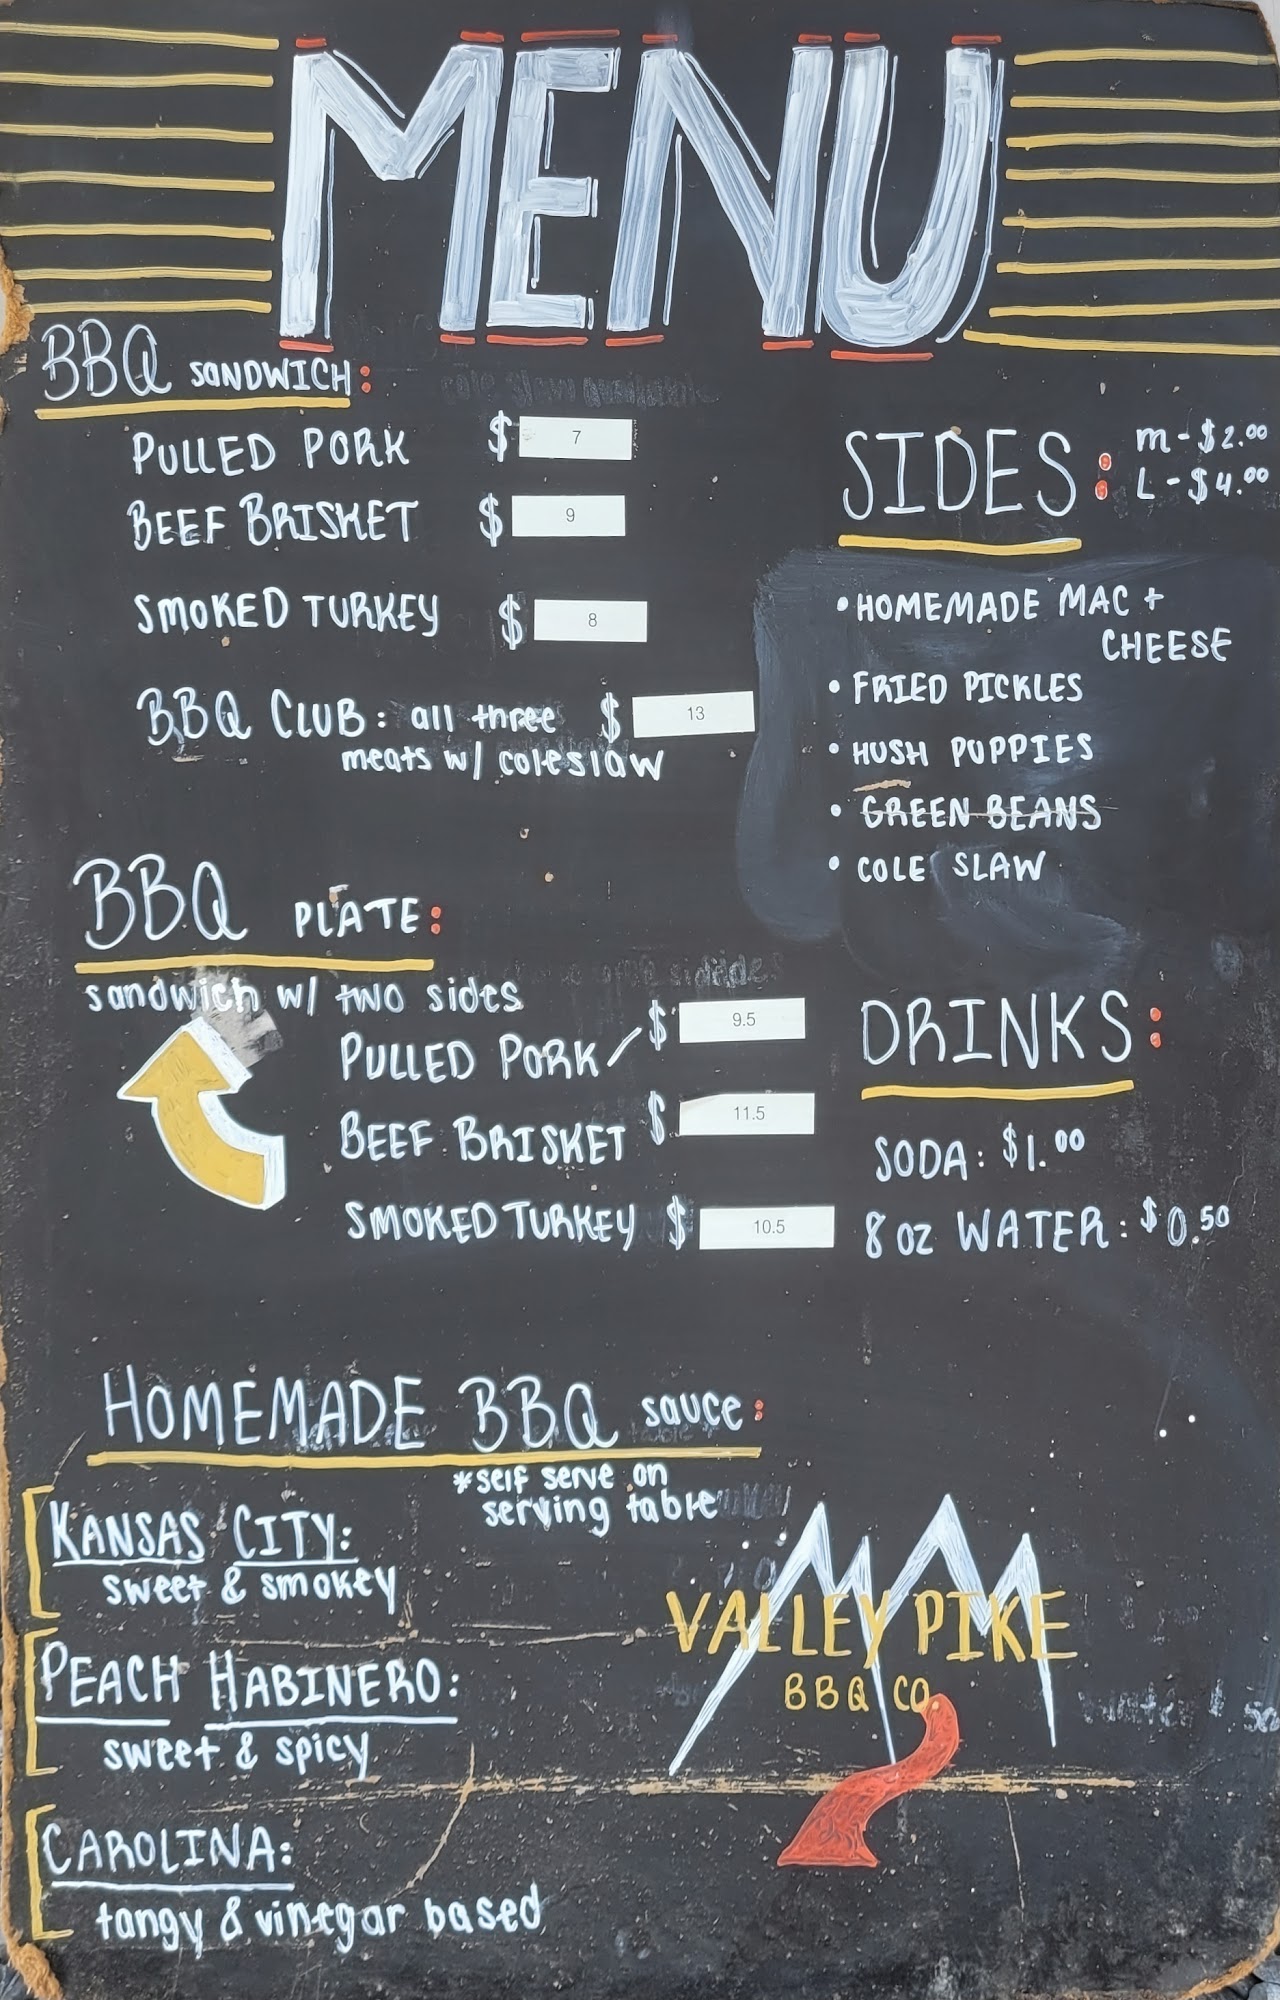 MENU
BBQ SANDWICH:
PULLED PORK $ 7
BEEF BRISKET $ 9
SMOKED TURKEY $ 8
BBQ CLUB: all three $ 13
meats w/ coleslaw
SIDES: m - $2.00
L - $4.00
• HOMEMADE MAC +
CHEESE
• FRIED PICKLES
• HUSH PUPPIES
• GREEN BEANS
• COLE SLAW
BBQ PLATE:
sandwich w/ two sides
PULLED PORK $ 9.5
BEEF BRISKET $ 11.5
SMOKED TURKEY $ 10.5
DRINKS:
SODA: $1.00
8 oz WATER: $0.50
HOMEMADE BBQ sauce:
*self serve on
serving table
KANSAS CITY:
sweet & smokey
PEACH HABINERO:
sweet & spicy
CAROLINA:
tangy & vinegar based
VALLEY PIKE
BBQ CO.